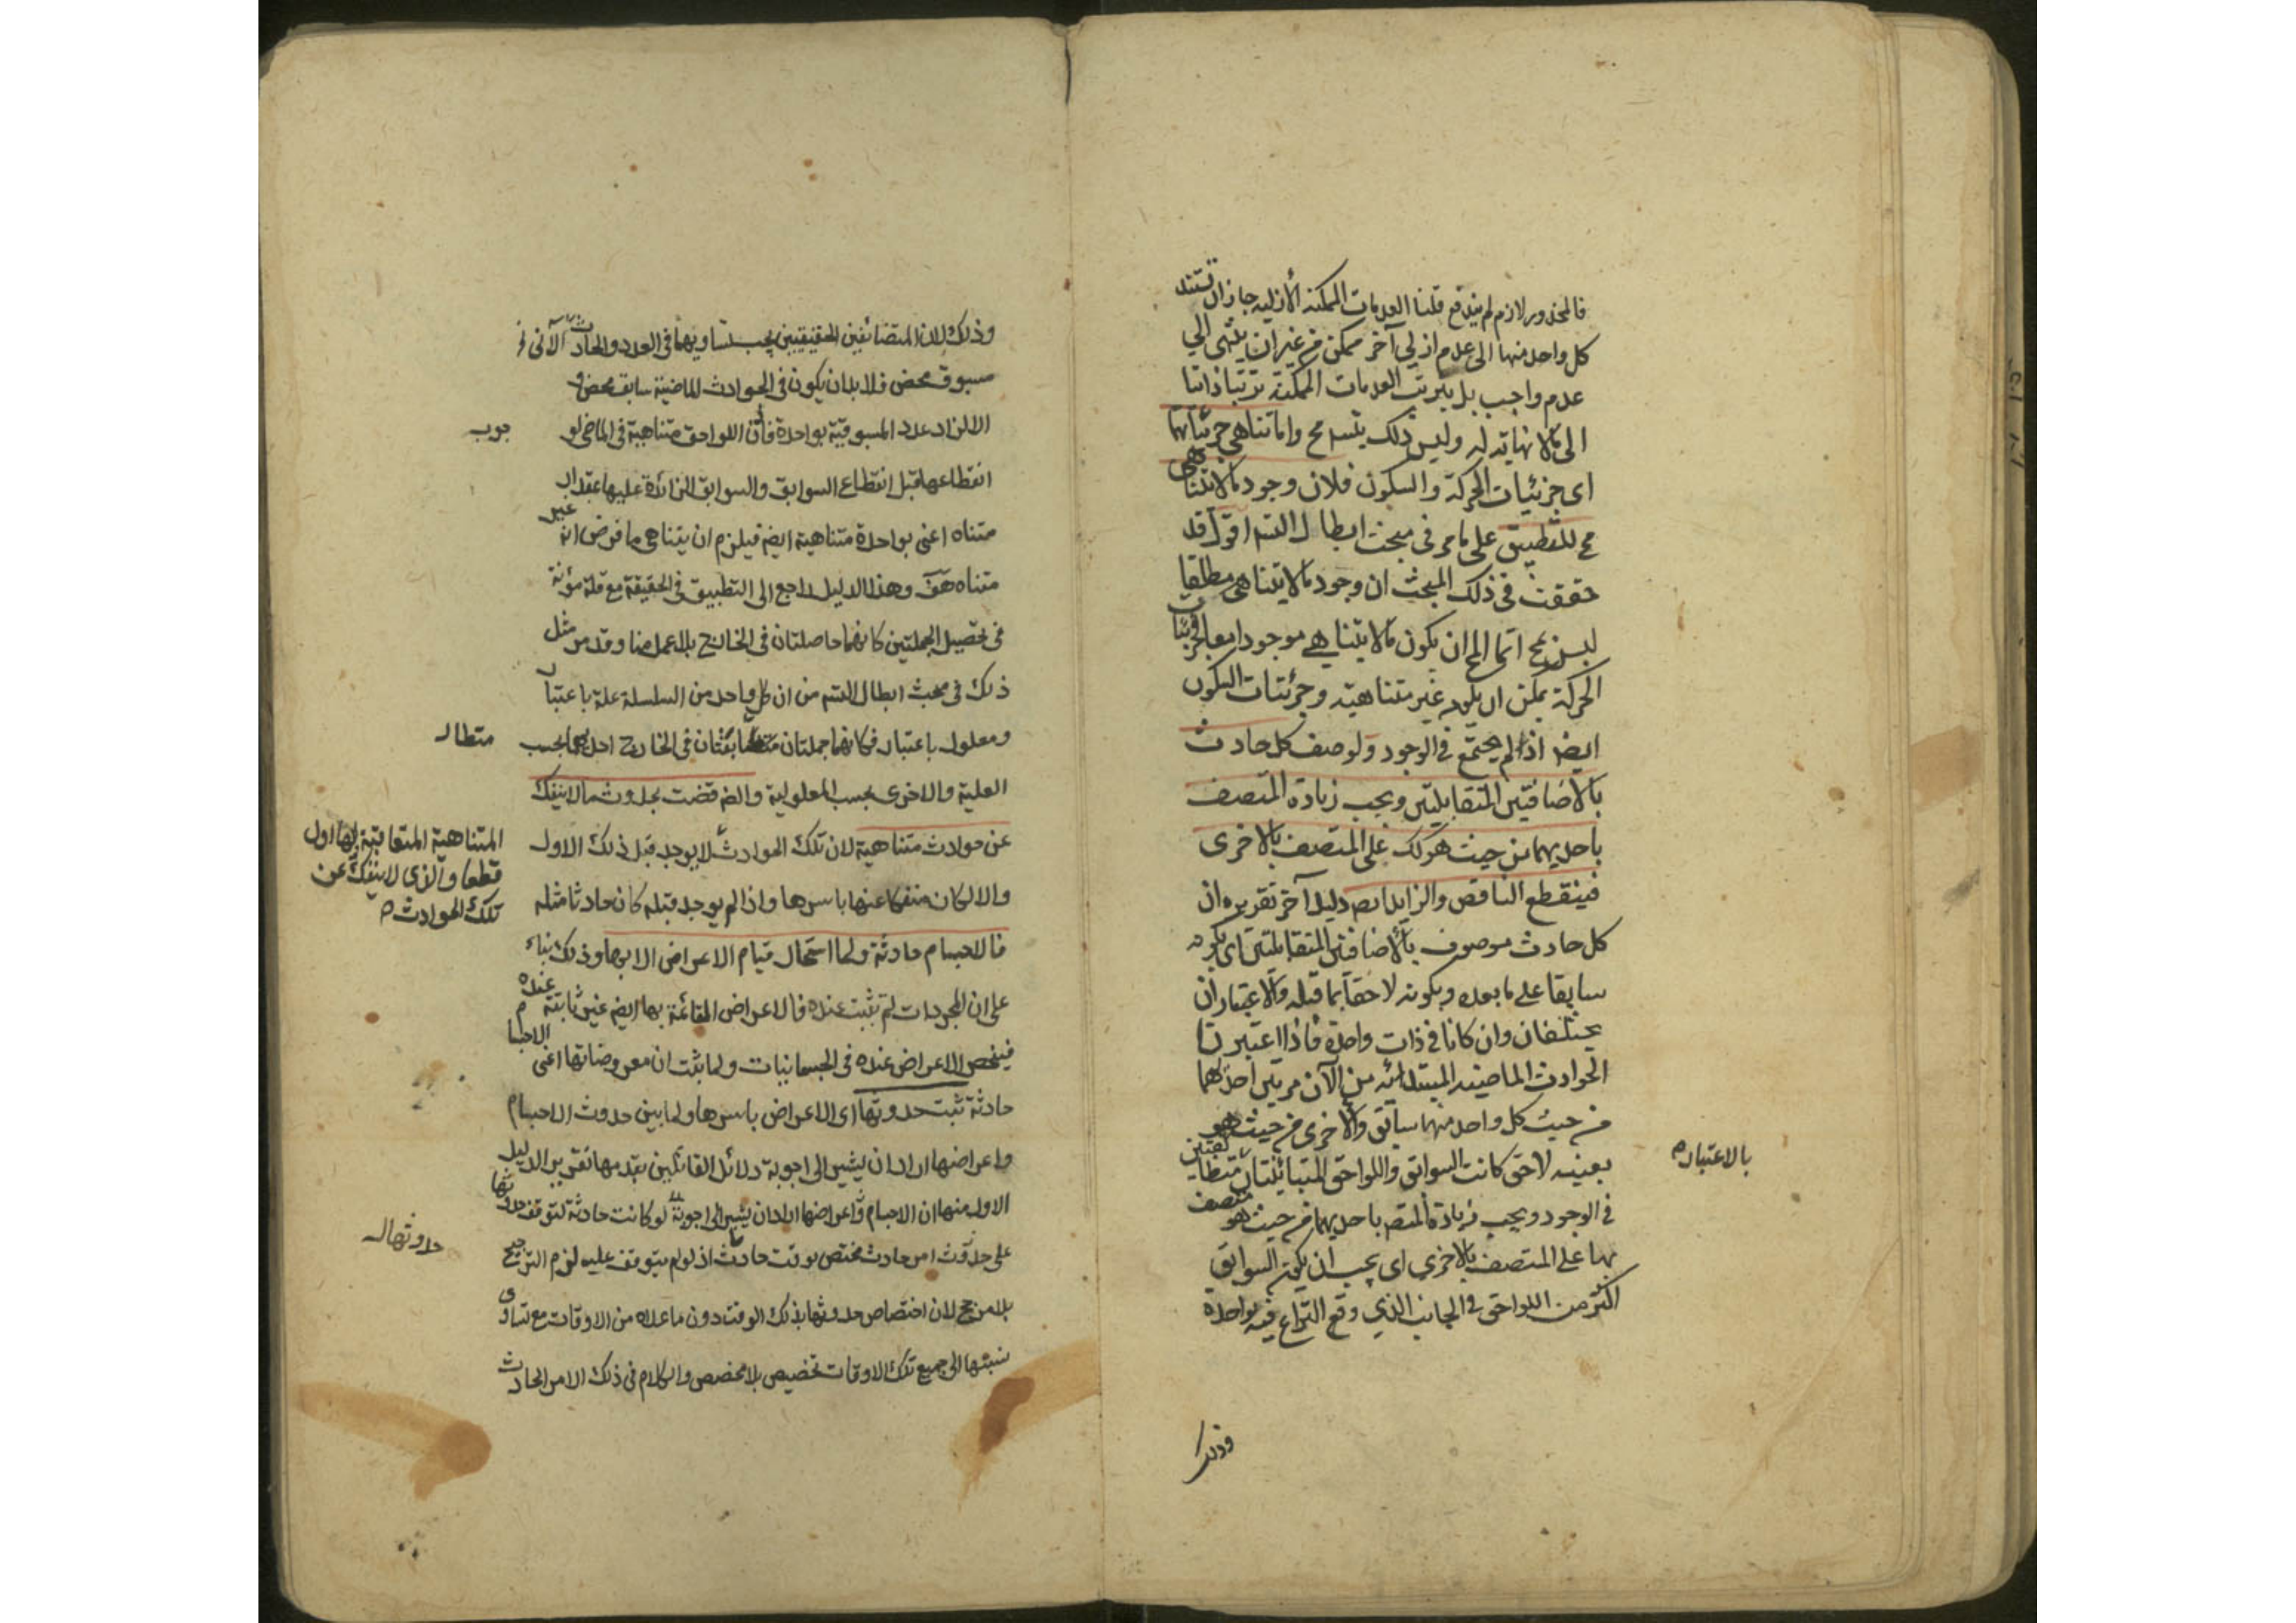 فالمحذور لازم لم يندفع قلنا العدمات الممكنة الأزلية جاز ان تستند
كل واحد منها الى عدم ازلي آخر ممكن من غير ان ينتهي الي
عدم واجب بل يترتب العدمات الممكنة ترتبا ذاتيا
الى ما لا نهاية له وليس ذلك بتسلسل مح واما تناهي جزئياتها
اى جزئيات الحركة والسكون فلان وجود ما لا يتناهى
مح للتطبيق على ما مر في مبحث ابطال التسم اقول قد
حققت فى ذلك المبحث ان وجود ما لا يتناهى مطلقا
ليس بمح انما المح ان يكون ما لا يتناهي موجودا معا فجزئيات
الحركة يمكن ان يكون غير متناهية وجزئيات السكون
ايضا اذا لم يجتمع في الوجود ولوصف كل حادث
بالاضافتين المتقابلتين ويجب زيادة المتصف
باحديهما من حيث هو كك على المتصف بالاخرى
فينقطع الناقص والزايد ايضا دليل آخر تقريره ان
كل حادث موصوف بالاضافتين المتقابلتين اى بكونه
سابقا على ما بعده وبكونه لاحقا بما قبله والاعتباران
مختلفان وان كانا في ذات واحدة فاذا اعتبرنا
الحوادث الماضية المبتدائة من الآن مرتين احديهما
من حيث كل واحد منهما سابق والاخرى من حيث هو
بعينه لاحق كانت السوابق واللواحق المتباينتان متطابقتين
بالاعتبار
فى الوجود ويجب زيادة المتصف باحديهما من حيث هو متصف
بها على المتصف بالاخرى اى يجب ان يكون السوابق
اكثر من اللواحق في الجانب الذي وقع النزاع فيه بواحدة
وذلك
وذلك لان المتضائفين الحقيقيين يجب تساويهما فى العدد والحادث الآنى
مسبوق محض فلا بد ان يكون فى الحوادث الماضية سابق محض و
الا لزاد عدد المسبوقية بواحدة فاذن اللواحق متناهية فى الماضى لو
جوب
انقطاعها قبل انقطاع السوابق والسوابق الزائدة عليها بمقدار
متناه اعنى بواحدة متناهية ايضا فيلزم ان يتناهى ما فرض انه غير
متناه هف وهذا الدليل راجع الى التطبيق فى الحقيقة مع قلة مؤنة
فى تحصيل الجملتين كانهما حاصلتان فى الخارج بلا عمل منا وقد مر مثل
ذلك فى مبحث ابطال التسم من ان كل واحد من السلسلة علة باعتبار
ومعلول باعتبار فكانهما جملتان متطابقتان فى الخارج احديهما بحسب
متطا
العلية والاخرى بحسب المعلولية والضرورة قضت بحدوث ما لا ينفك
عن حوادث متناهية لان تلك الحوادث لا يوجد قبل ذلك الاول
المتناهية المتعاقبة لها اول
قطعا والذى لا ينفك عن
تلك الحوادث
والا لكان منفكا عنها باسرها واذا لم يوجد قبله كان حادثا مثله
فالاجسام حادثة ولما استحال قيام الاعراض الا بها وذلك بناء
على ان المجردات لم تثبت عنده فالاعراض القائمة بها ايضا غير ثابتة عنده
فينحصر الاعراض عنده فى الجسمانيات ولما ثبت ان معروضاتها اعنى الاجسام
حادثة ثبت حدوثها اى الاعراض باسرها ولما بين حدوث الاجسام
واعراضها اراد ان يشير الى اجوبة دلائل القائلين بقدمها تقرير الدليل
الاول منها ان الاجسام واعراضها اراد ان يشير الى اجوبة لو كانت حادثة لتوقف حدوثها
حدوثها
على حدوث امر حادث مختص بوقت حادث اذ لو لم يتوقف عليه لزم الترجيح
بلا مرجح لان اختصاص حدوثها بذلك الوقت دون ما عداه من الاوقات مع تساوى
نسبتها الى جميع تلك الاوقات تخصيص بلا مخصص والكلام فى ذلك الامر الحادث